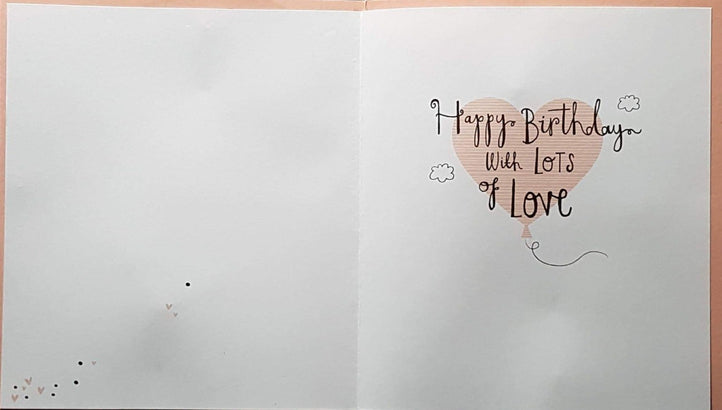 Happy Birthday
With LOTS
of Love